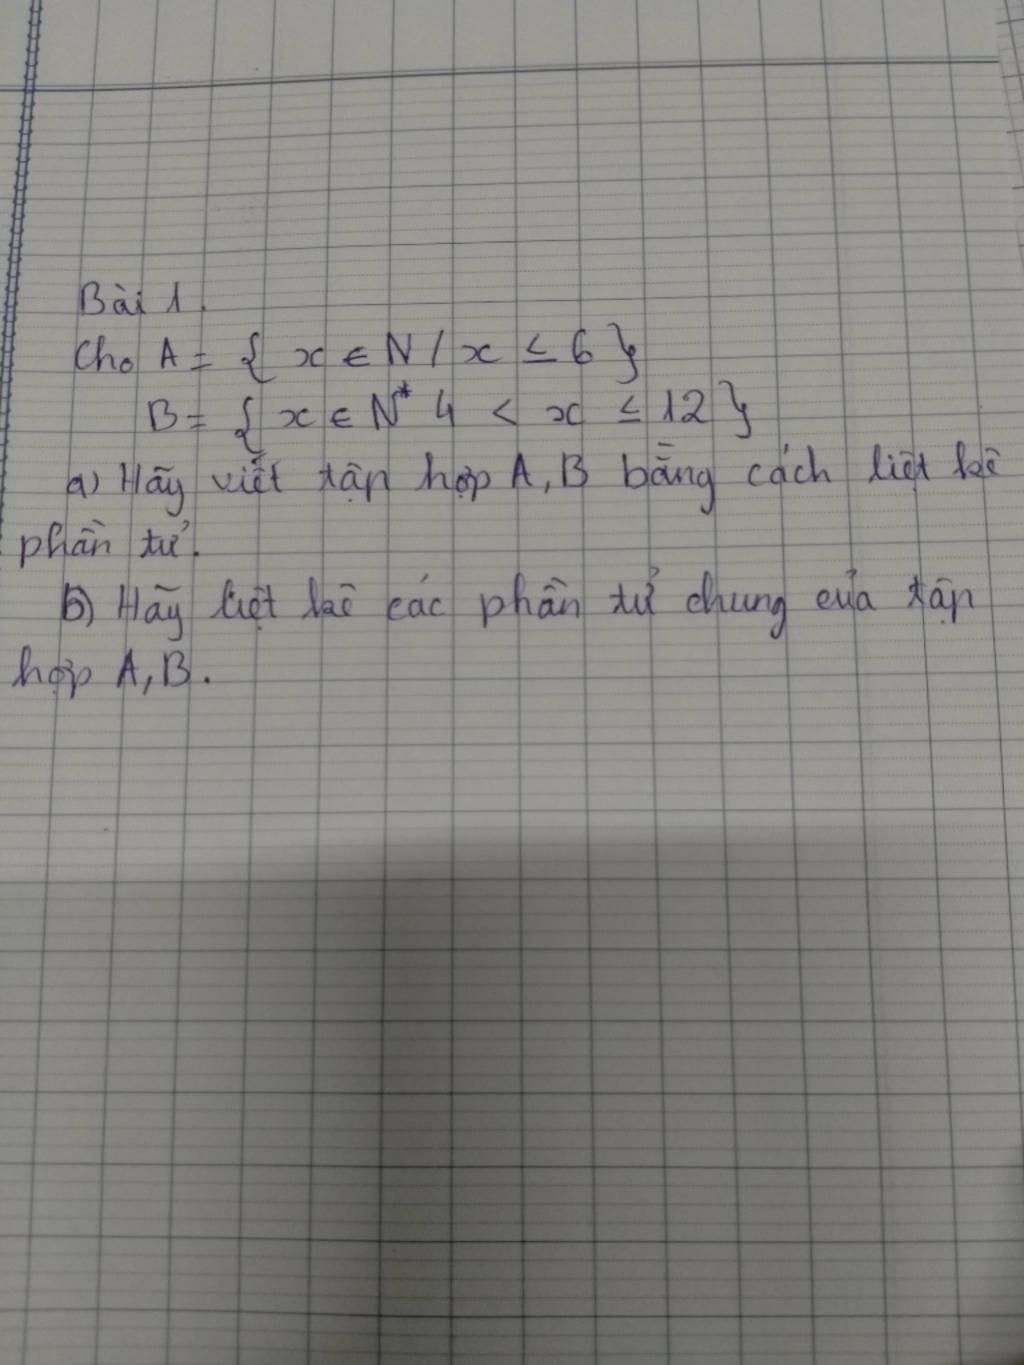 Bài 1.
Cho A = { x ∈ N / x ≤ 6 }
B = { x ∈ N* 4 < x ≤ 12 }
a) Hãy viết tập hợp A, B bằng cách liệt kê
phần tử.
b) Hãy liệt kê các phần tử chung của tập
hợp A, B.